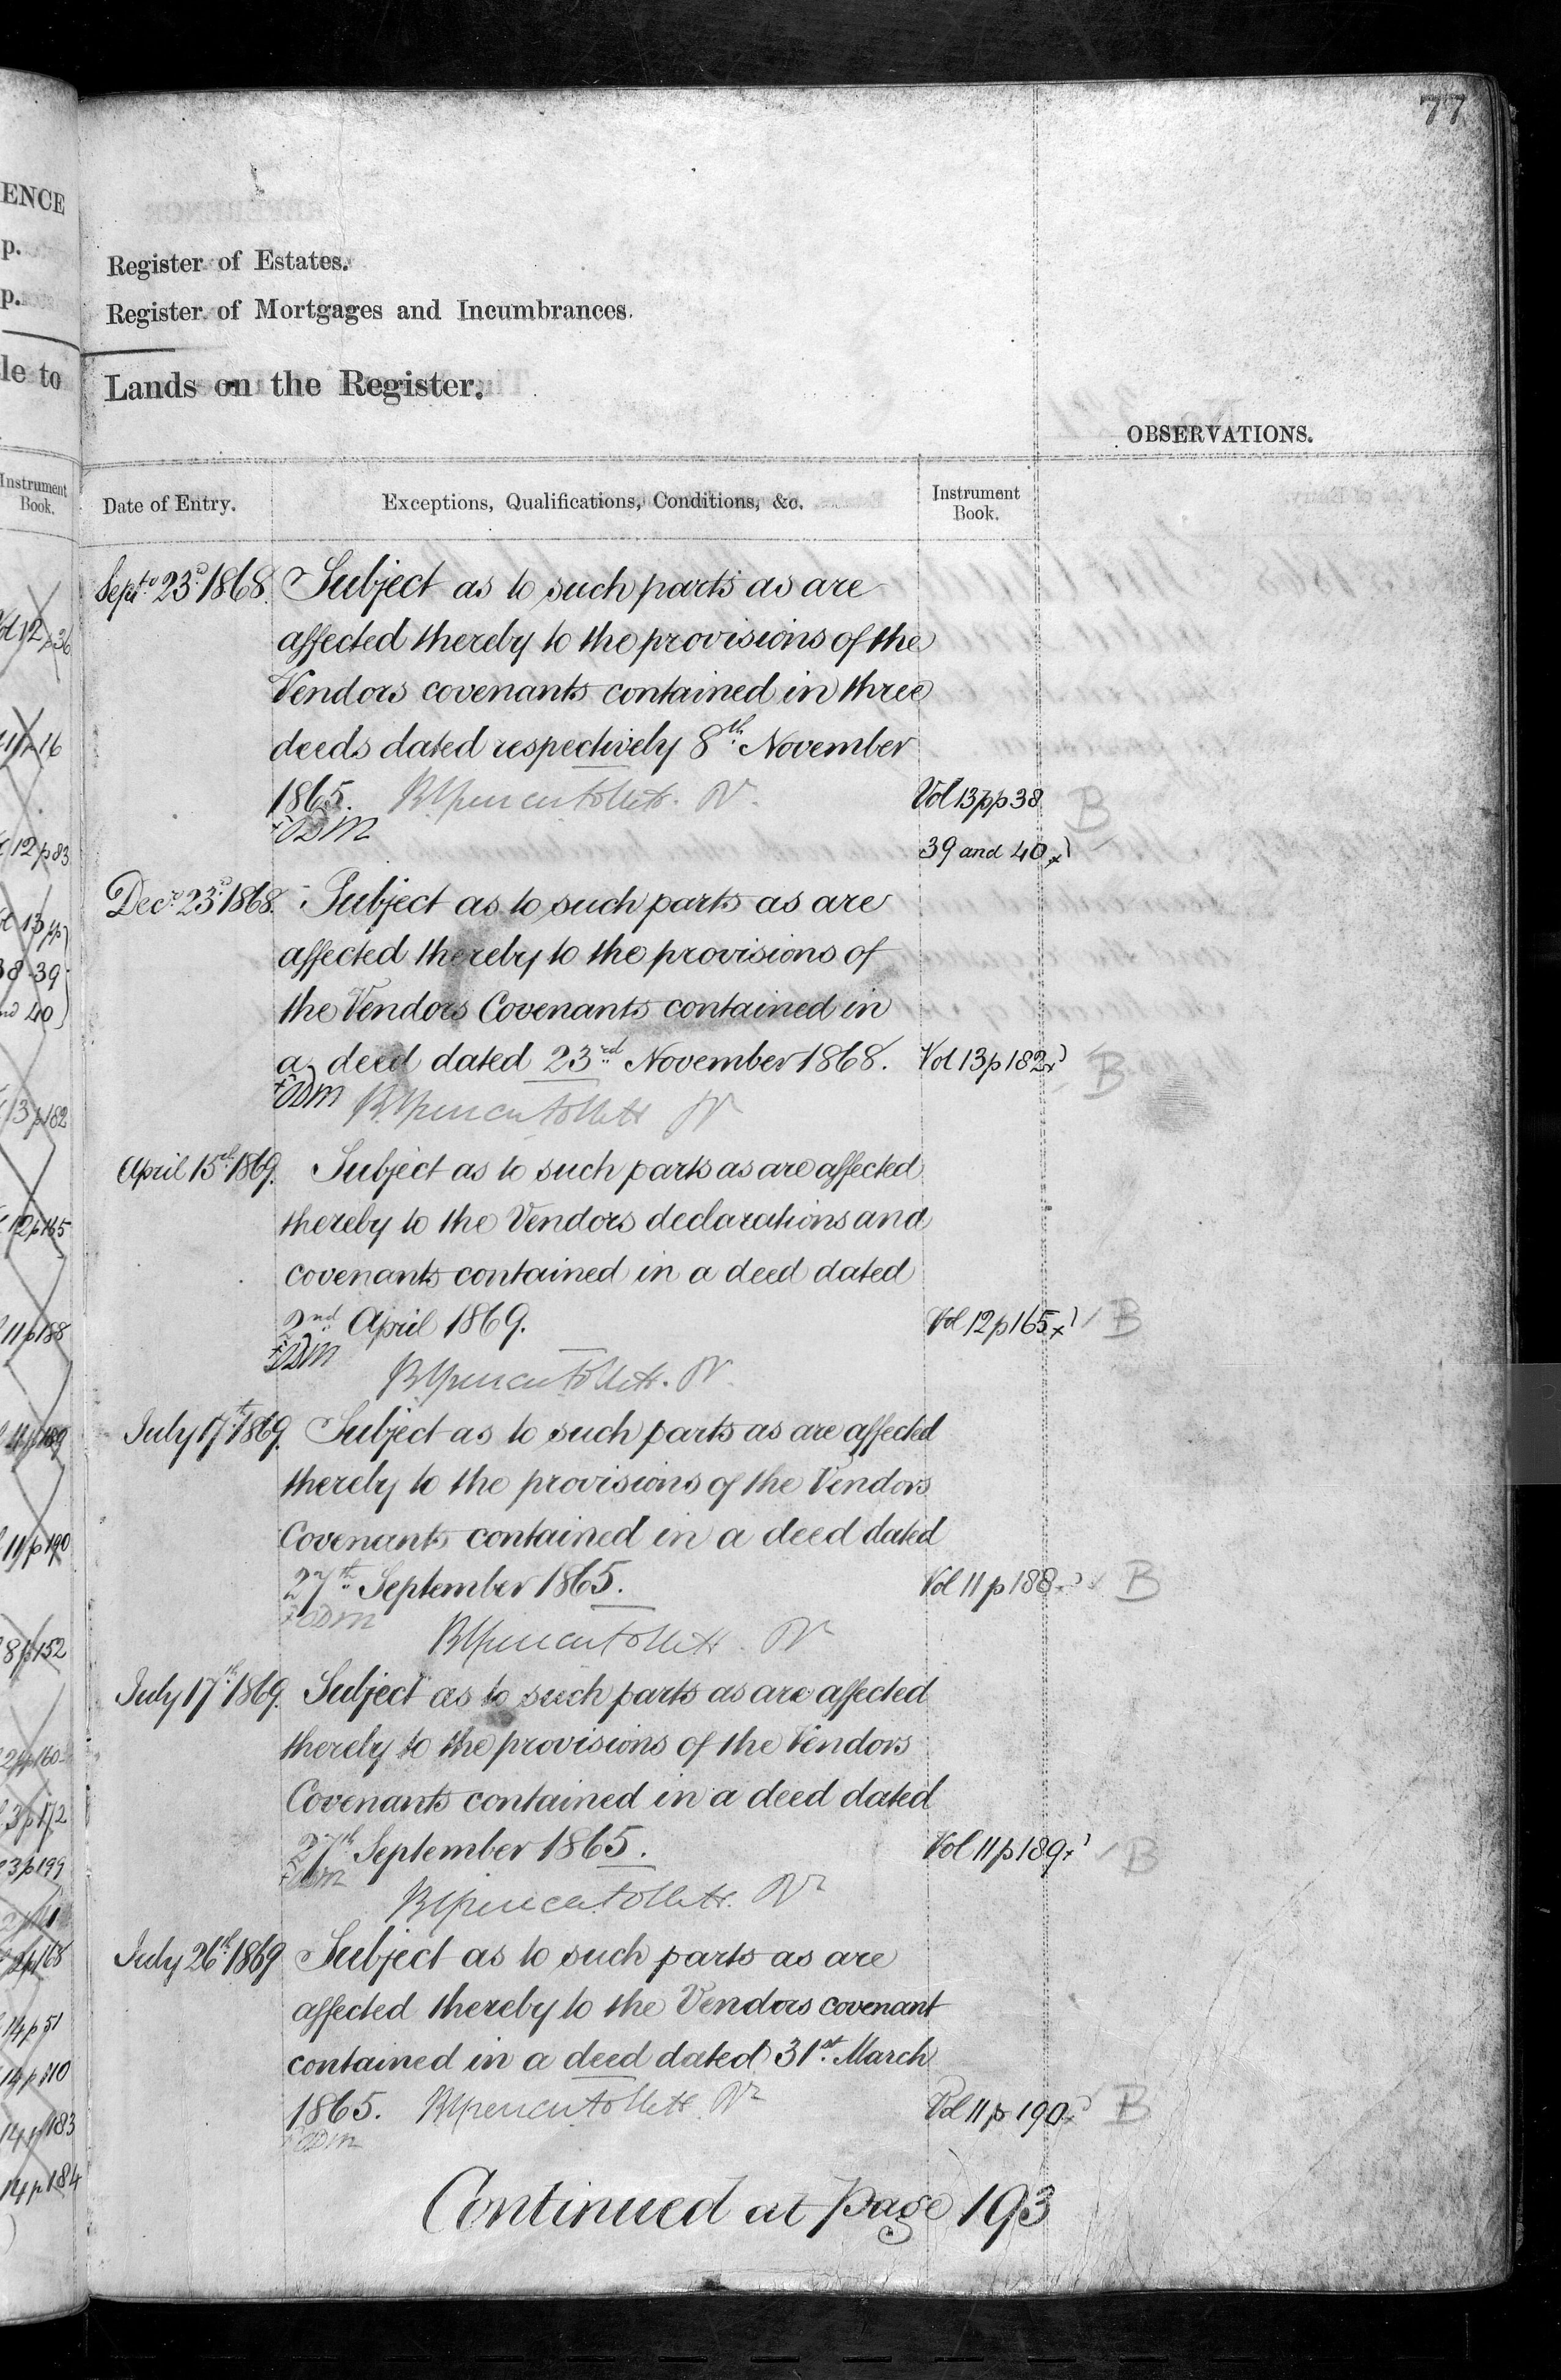 77
ENCE
p.
p.
le to
Instrument
Book.
Register of Estates.
Register of Mortgages and Incumbrances.
Lands on the Register.
OBSERVATIONS.
Date of Entry.
Exceptions, Qualifications, Conditions, &c.
Instrument
Book.
Septr 23d 1868. Subject as to such parts as are
affected thereby to the provisions of the
Vendors covenants contained in three
deeds dated respectively 8th November
1865. Vol 13 pp 38 B
39 and 40
Decr 23d 1868. Subject as to such parts as are
affected thereby to the provisions of
the Vendors Covenants contained in
a deed dated 23rd November 1868. Vol 13 p 182 B
April 15th 1869. Subject as to such parts as are affected
thereby to the Vendors declarations and
covenants contained in a deed dated
2nd April 1869. Vol 12 p 165 B
July 17th 1869. Subject as to such parts as are affected
thereby to the provisions of the Vendors
Covenants contained in a deed dated
27th September 1865. Vol 11 p 188 B
July 17th 1869. Subject as to such parts as are affected
thereby to the provisions of the Vendors
Covenants contained in a deed dated
27th September 1865. Vol 11 p 189 B
July 26th 1869 Subject as to such parts as are
affected thereby to the Vendors covenant
contained in a deed dated 31st March
1865. Vol 11 p 190 B
Continued at page 193